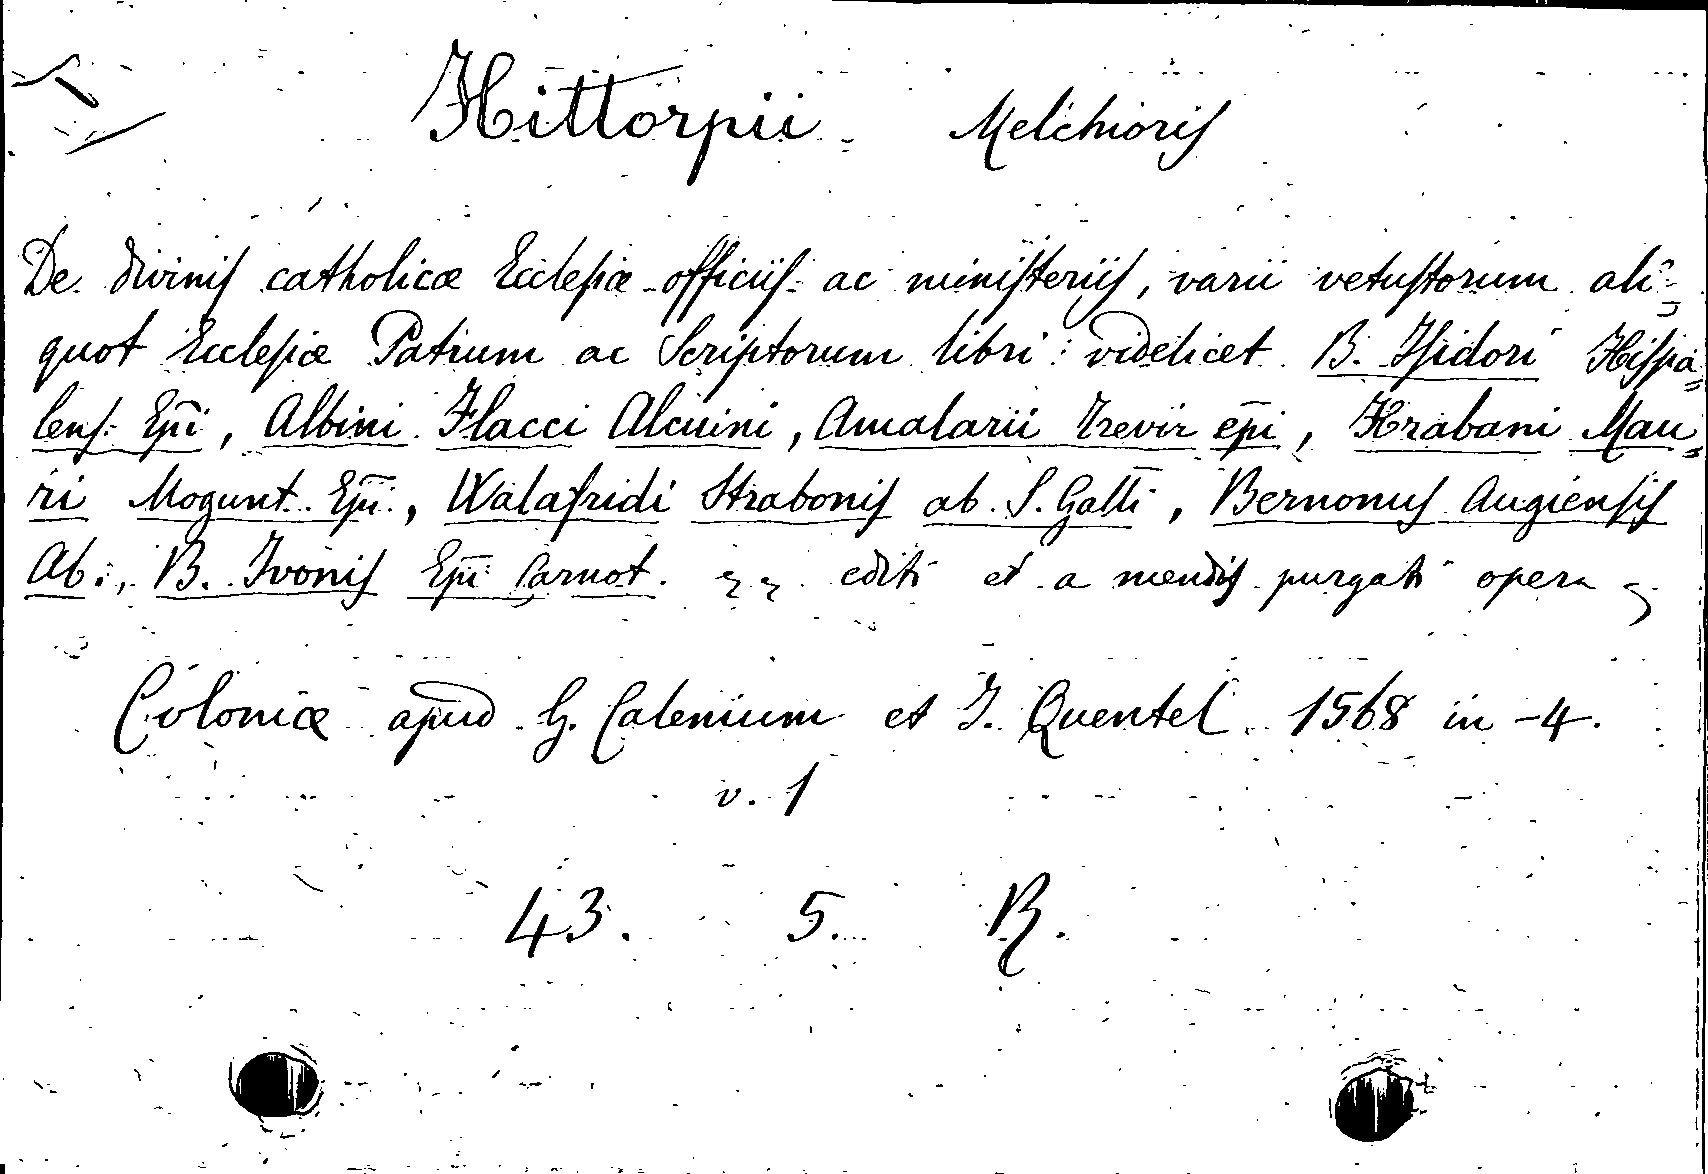 Hittorpii Melchioris
De divinis catholicæ Ecclesiæ officiis ac ministeriis, varii vetustorum ali=
quot Ecclesiæ Patrum ac Scriptorum libri: videlicet B. Isidori Hispa=
lens. Epī, Albini Flacci Alcuini, Amalarii Trevir epī, Hrabani Mau=
ri Mogunt. Epī., Walafridi Strabonis ab. S. Galli, Bernonis Augiensis
Ab:, B. Ivonis Epī Carnot. editi et a mendis purgati opera
Coloniæ apud G. Calenium et J. Quentel 1568 in-4.
v. 1
43. 5. B.